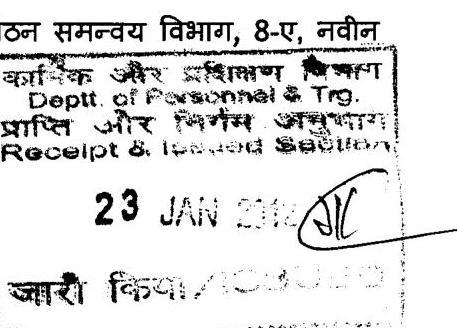 ठन समन्वय विभाग, 8-ए, नवीन
कार्मिक और प्रशिक्षण विभाग
Deptt. of Personnel & Trg.
प्राप्ति और निर्गम अनुभाग
Receipt & Issued Section
23 JAN
जारी किया/ISSUED